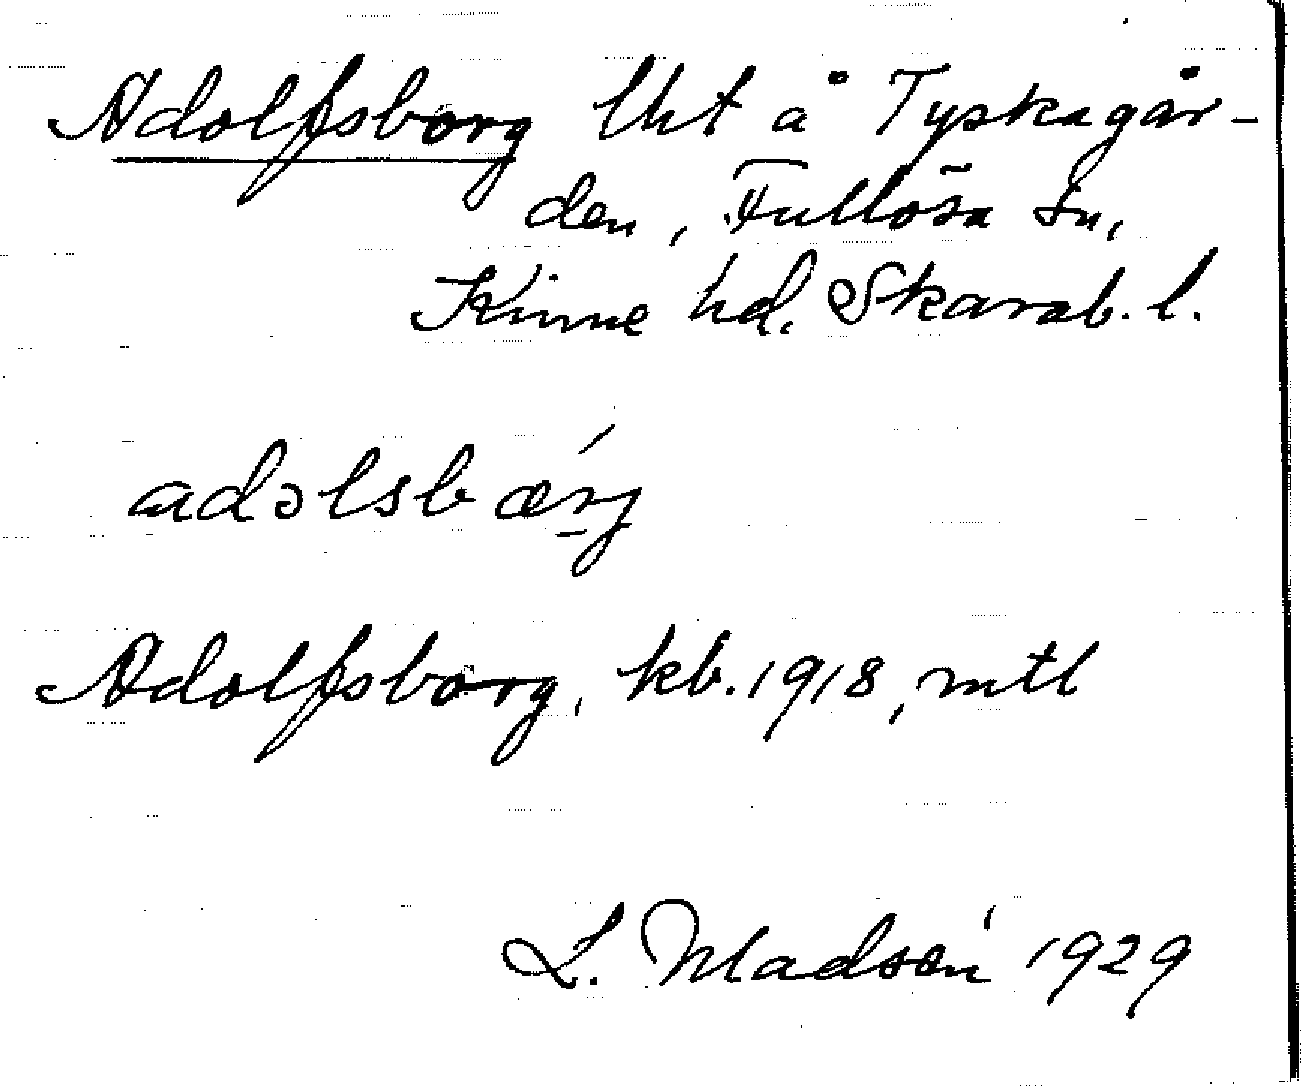 Adolfsborg lht å Tyskagår-
den, Fullösa sn,
Kinne hd. Skarab. l.
adɔlsbærj
Adolfsborg, kb. 1918, mtl
L. Madsén 1929